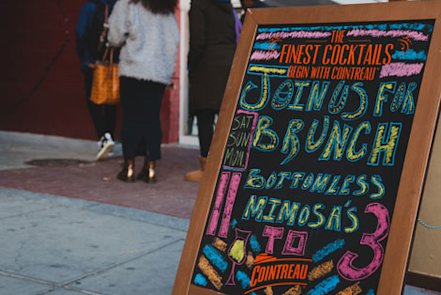 THE
FINEST COCKTAILS
BEGIN WITH COINTREAU
JOIN US FOR
BRUNCH
SAT
SUN
MON
BOTTOMLESS
MIMOSA'S
11 TO 3
COINTREAU